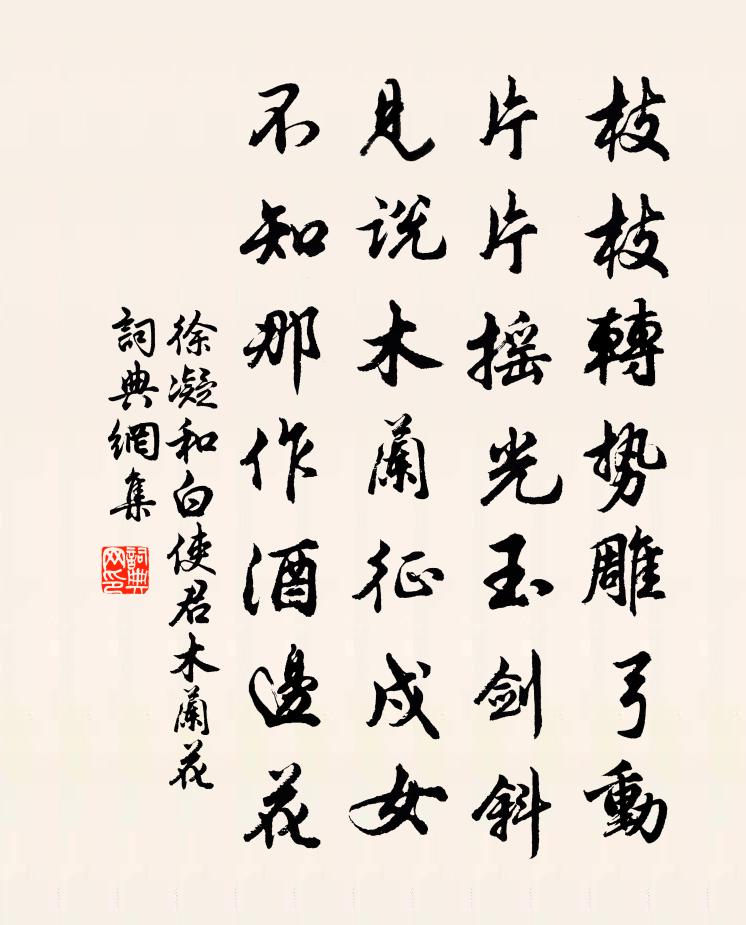 枝枝轉势雕弓動
片片摇光玉剑斜
見说木蘭征戍女
不知那作酒邊花
徐凝和白使君木蘭花
詞典網集
詞典网印